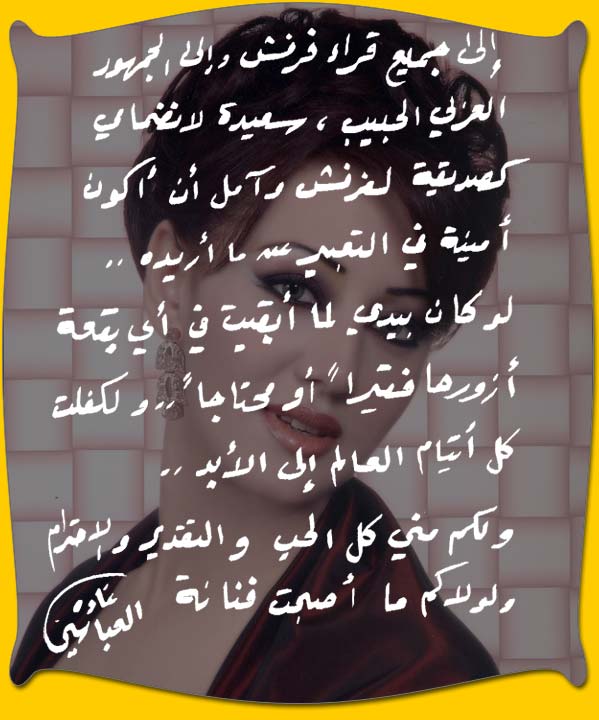 إلى جميع قراء فرفش وإلى الجمهور
العربي الحبيب ، سعيدة لانضمامي
كصديقة لفرفش وآمل أن أكون
أمينة في التعبير عن ما أريده ..
لو كان بيدي لما أبقيت في أي بقعة
أزورها فقيراً أو محتاجاً .. ولكفلت
كل أيتام العالم إلى الأبد ..
ولكم مني كل الحب والتقدير والاحترام
ولولاكم ما أصبحت فنانة